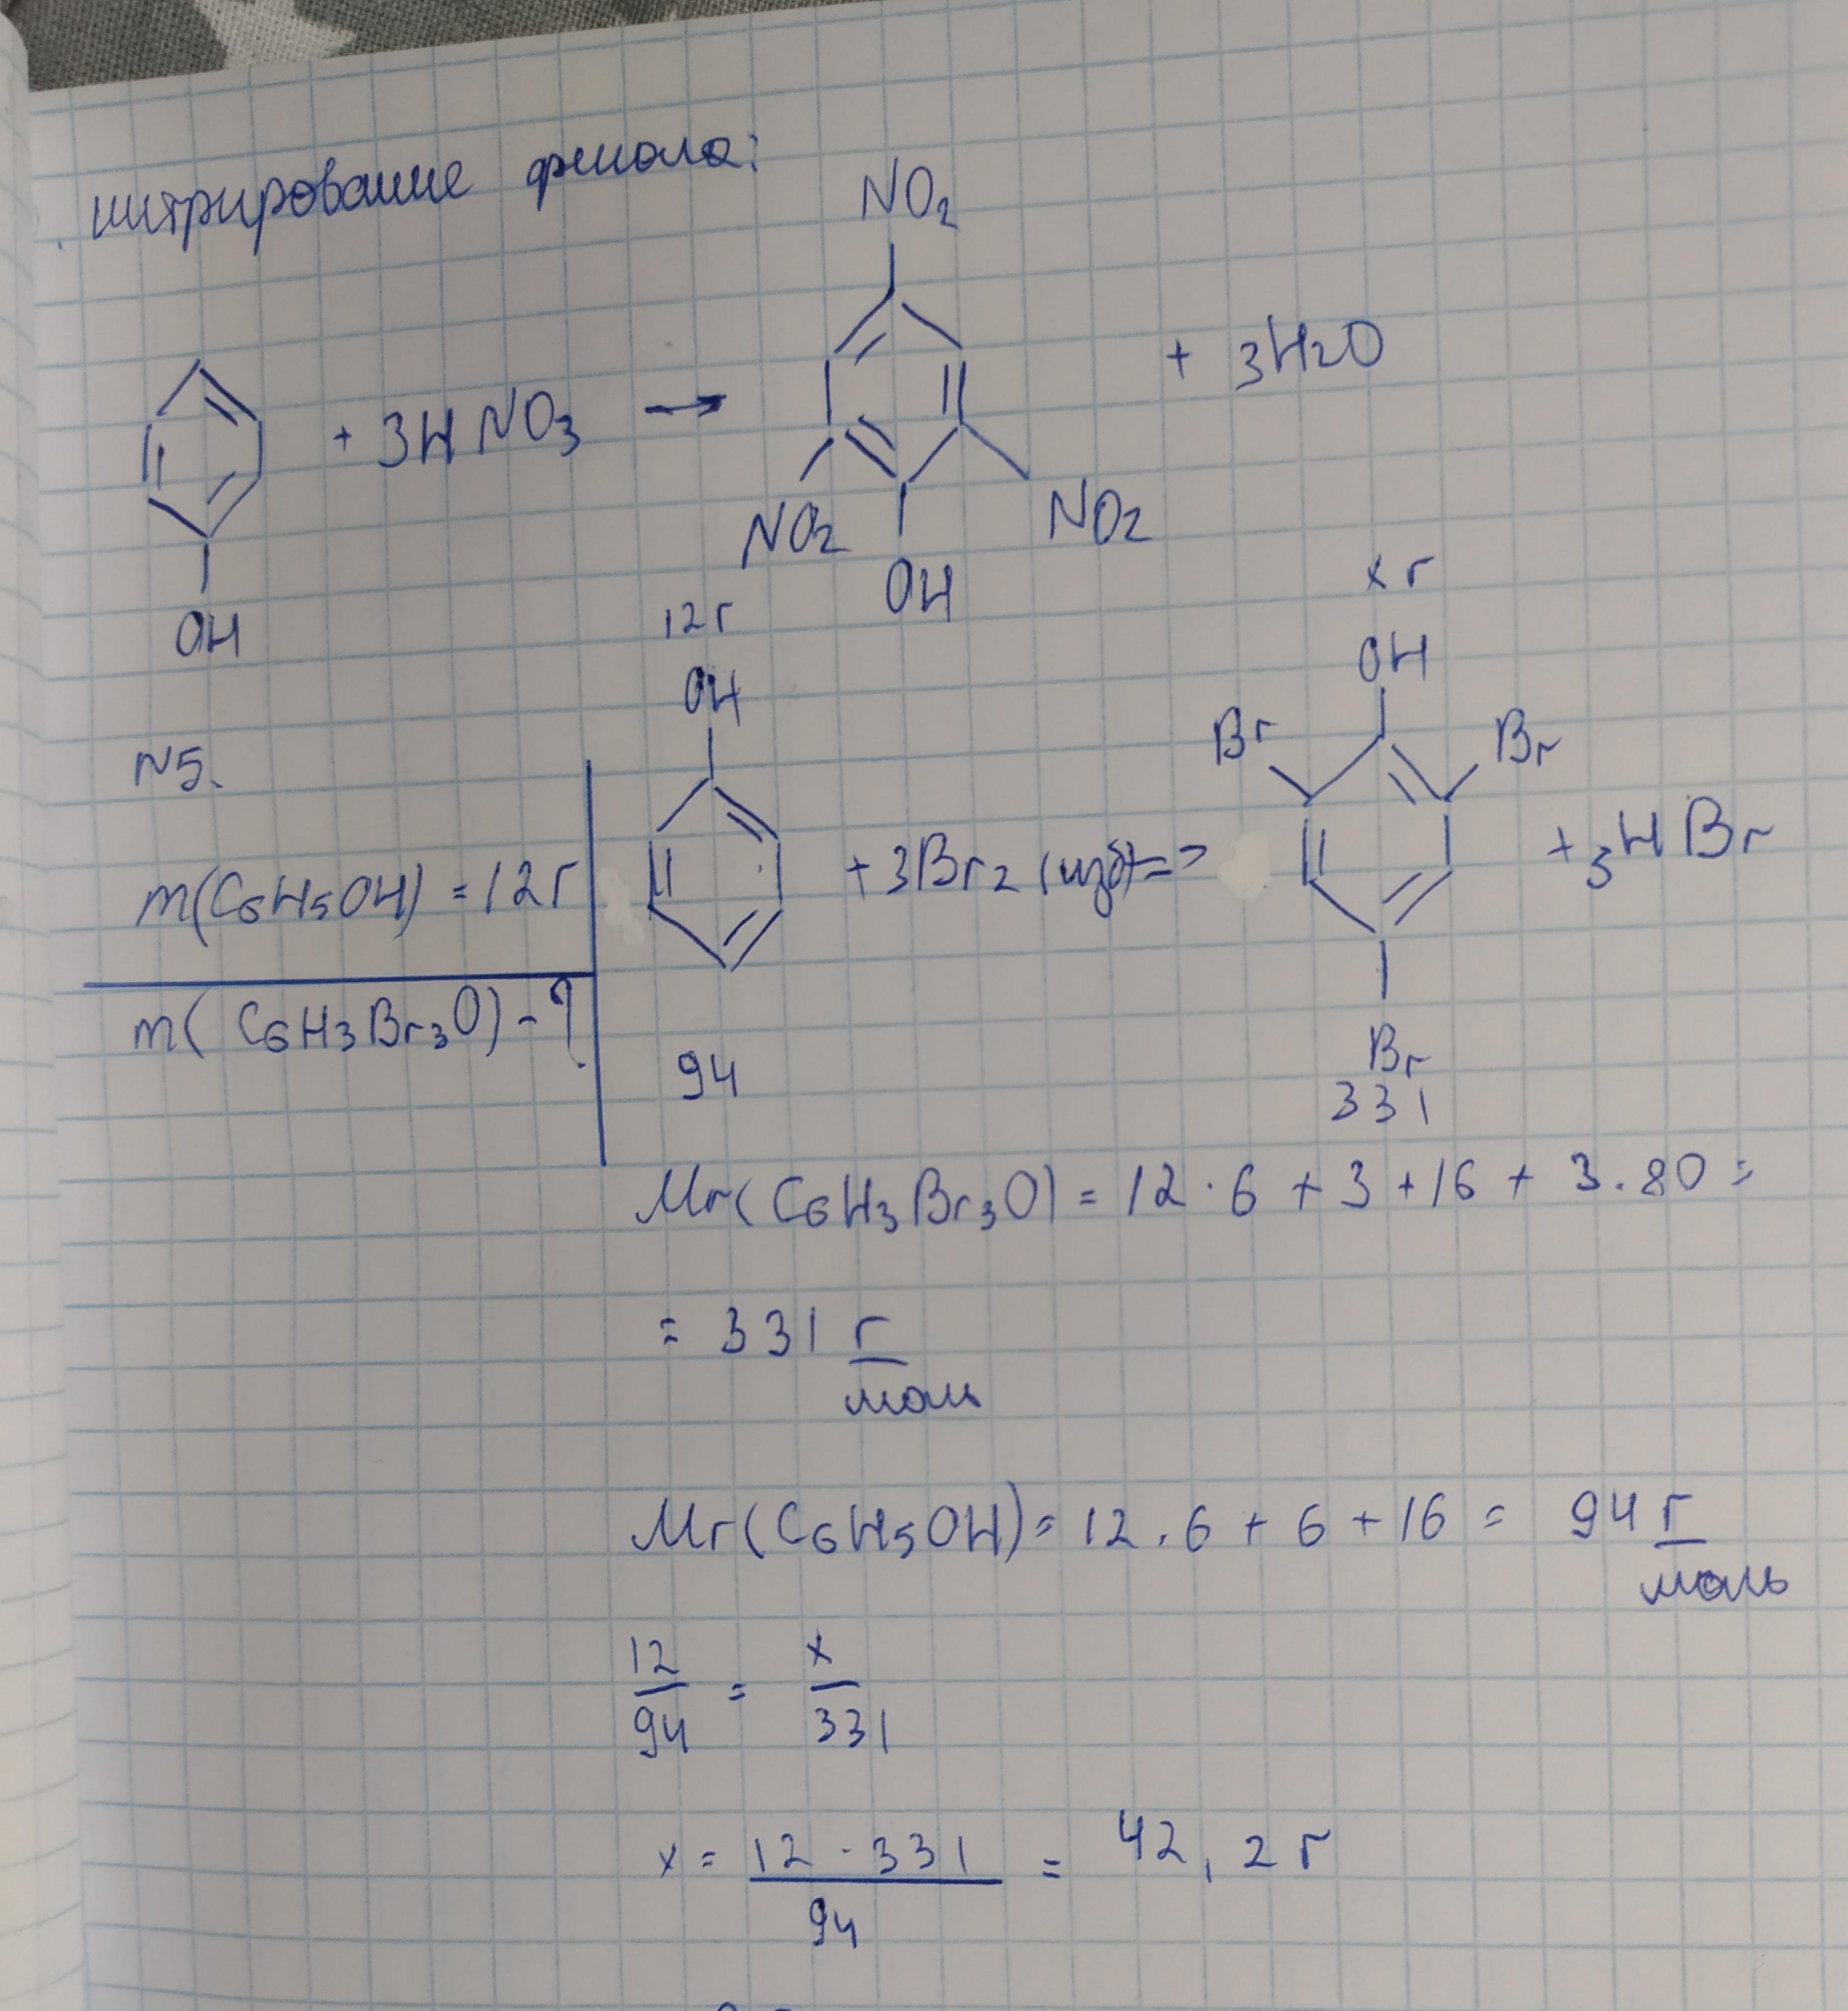 нитрирование фенола:
NO2
+ 3HNO3 → + 3H2O
NO2 NO2
OH OH
12г x г
OH OH
N5. Br Br
m(C6H5OH) = 12г + 3Br2 (изб) => + 3HBr
m(C6H3Br3O) - ?
94 Br
331
Mr(C6H3Br3O) = 12·6 + 3 + 16 + 3·80 =
= 331 г/моль
Mr(C6H5OH) = 12·6 + 6 + 16 = 94 г/моль
12/94 = x/331
x = 12·331/94 = 42,2 г